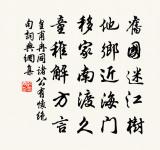 舊國迷江樹
他鄉近海門
移家南渡久
童稚解方言
皇甫冉同諸公有懷絕
句詞典網集